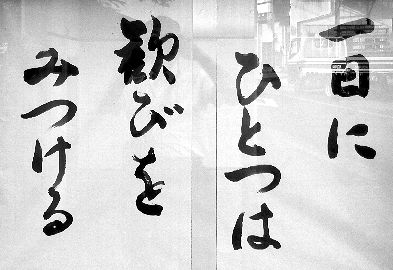 一日に
ひとつは
歓びを
みつける